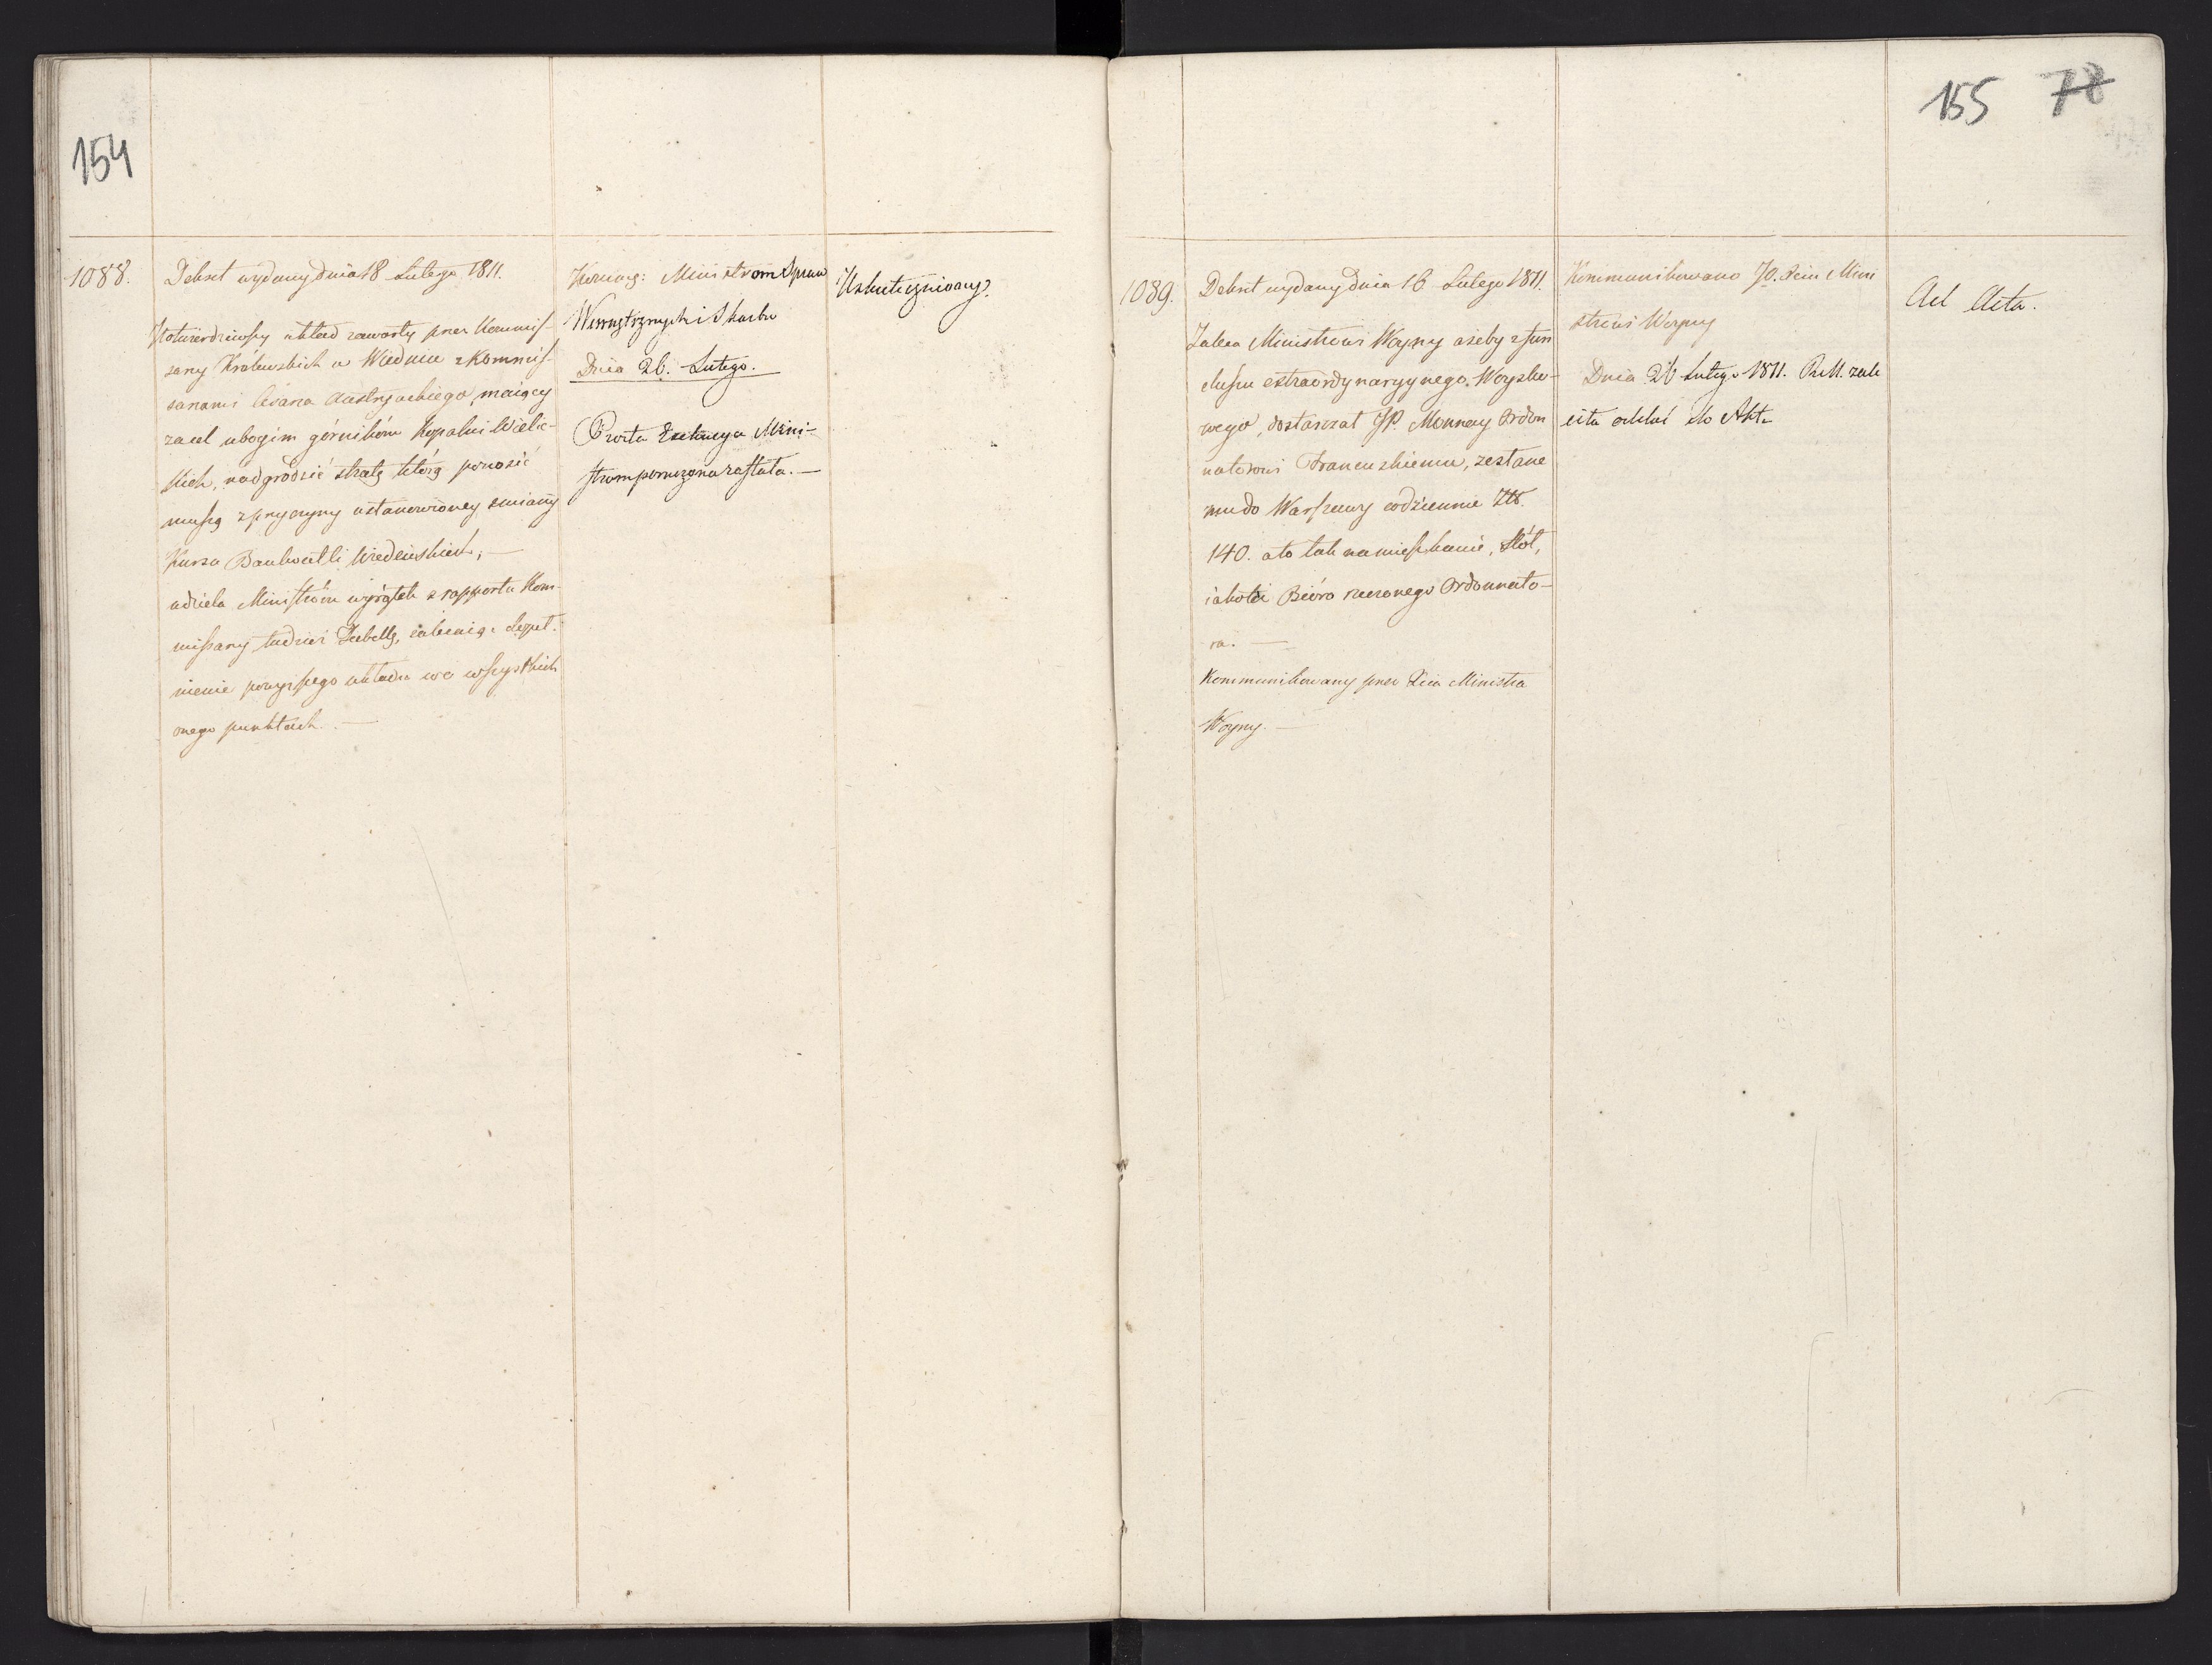 154
1088.
Dekret wydany dnia 18 Lutego 1811.
Potwierdziwszy układ zawarty przez Kommis-
sarzy Królewskich w Wiedniu z Kommis-
sarzami Cesarza Austryackiego, maiący
za cel ubogim górnikom Kopalni Wielic-
kich, nadgrodzić stratę którą ponosić
muszą z przyczyny ustanowioney zmiany
Kursu Bankocetli Wiedeńskich, —
udziela Ministrom wyiątek z rapportu Kom-
missarzy tudzież Tabellę, zaleciaiąc
nienie powyższego układu we wszystkich
onego punktach. —
Ministrom Spraw
Wewnętrznych i Skarbu
Dnia 26. Lutego.
Prosta Exekucya Mini-
strom poruczona została. —
Uskuteczniony.
155 78
1089.
Dekret wydany dnia 16 Lutego 1811.
Zaleca Ministrowi Woyny ażeby z fun
duszu extraordynaryynego Woysko-
wego, dostarczał JP. Monnay Ordon
natorowi Francuzkiemu, zesłane
mu do Warszawy codziennie Złt.
140. a to tak na mieszkanie, Stół,
iako i Biuro rzeczonego Ordonnato-
ra. —
Kommunikowany przez Xcia Ministra
Woyny. —
Kommunikowano JO. Xciu Mini
strowi Woyny
Dnia 26 Lutego 1811. R.M. zale
ciła oddać do Akt.
Ad Acta.